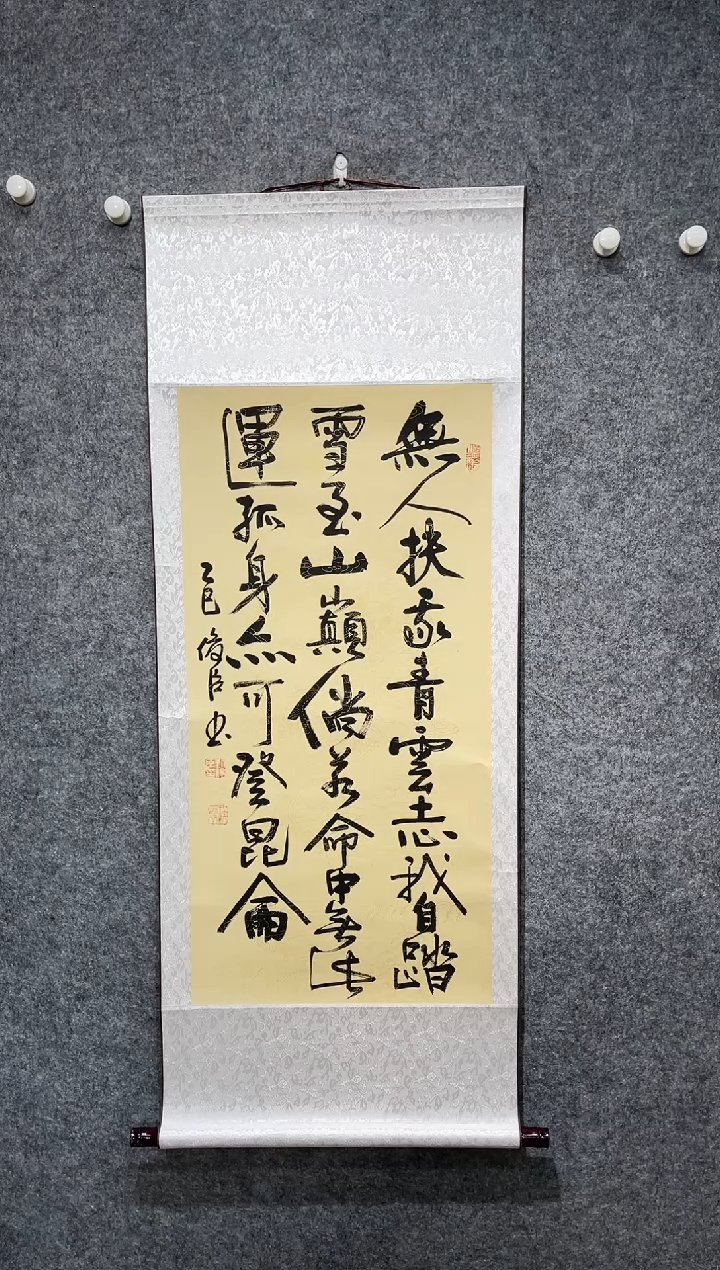 無人扶我青雲志我自踏
雪至山巔倘若命中無此
運孤身亦可登昆侖
乙巳俊臣书